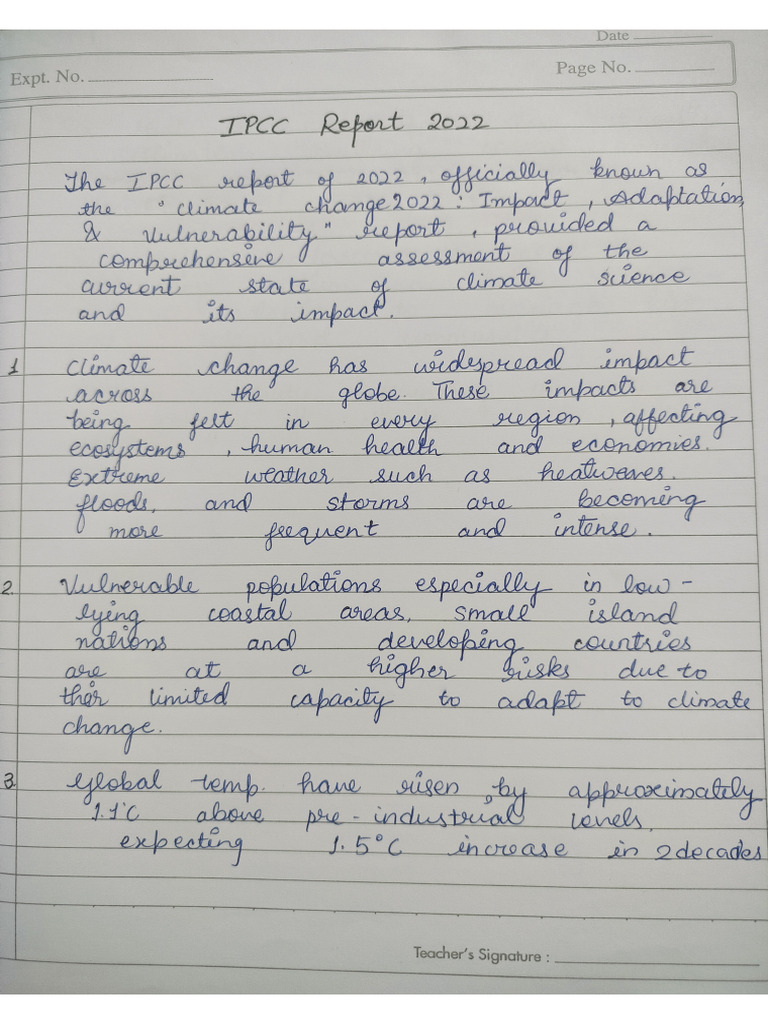 Date
Expt. No.
Page No.
IPCC Report 2022
The IPCC report of 2022, officially known as
the "climate change2022: Impact, Adaptation
& Vulnerability" report, provided a
comprehensive assessment of the
current state of climate science
and its impact.
1 Climate change has widespread impact
across the globe. These impacts are
being felt in every region, affecting
ecosystems, human health and economies.
Extreme weather such as heatwaves.
floods, and storms are becoming
more frequent and intense.
2. Vulnerable populations especially in low-
lying coastal areas, small island
nations and developing countries
are at a higher risks due to
ther limited capacity to adapt to climate
change.
3. Global temp. have risen by approximately
1.1°C above pre-industrial levels.
expecting 1.5°C increase in 2decades
Teacher's Signature :